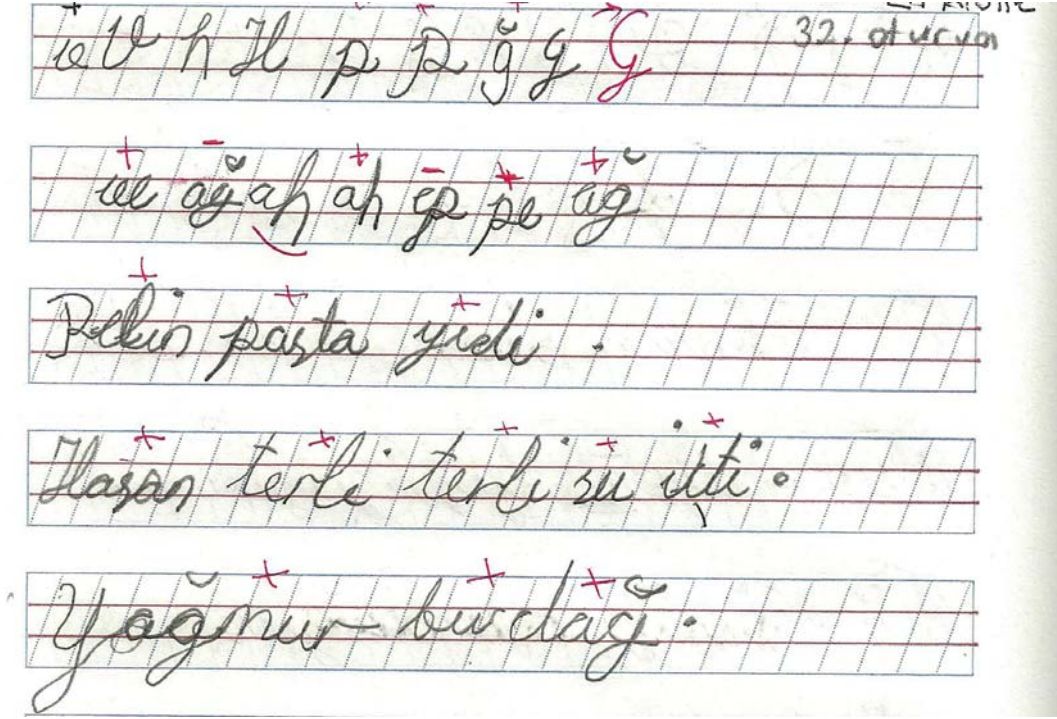 32. oturum
ve V h H p P ğ y G
ve ağ ah ah ep pe ağ
Pelin pasta yidi.
Hasan terli terli su içti.
Yağmur burdağ.